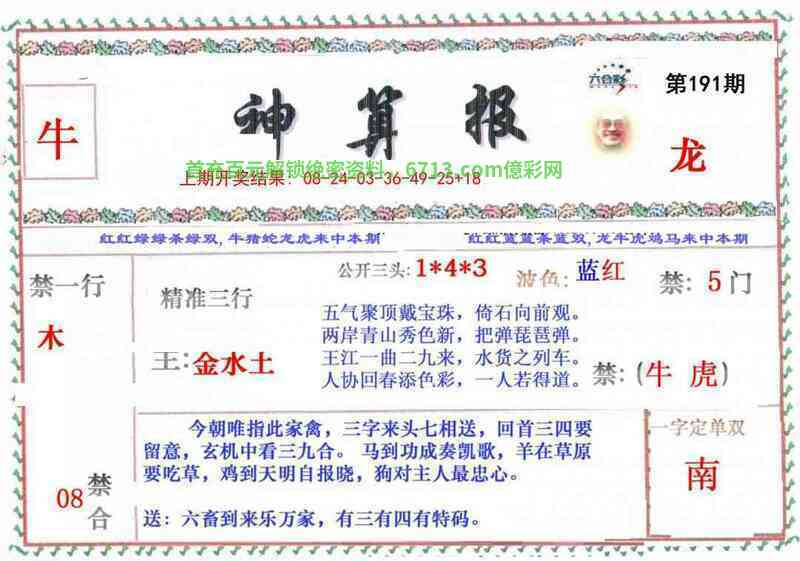 六合彩
第191期
牛
神算报
龙
首充百元解锁绝密资料、6713.com億彩网
上期开奖结果：08-24-03-36-49-25+18
红红绿绿条绿双,牛猪蛇龙虎来中本期
红红蓝蓝条蓝双,龙牛虎鸡马来中本期
禁一行
木
精准三行
王:金水土
公开三头:1*4*3
波色:蓝红
禁:5门
五气聚顶戴宝珠，倚石向前观。
两岸青山秀色新，把弹琵琶弹。
王江一曲二九来，水货之列车。
人协回春添色彩，一人若得道。
禁:(牛 虎)
08禁合
今朝唯指此家禽，三字来头七相送，回首三四要
留意，玄机中看三九合。 马到功成奏凯歌，羊在草原
要吃草，鸡到天明自报晓，狗对主人最忠心。
送：六畜到来乐万家，有三有四有特码。
一字定单双
南